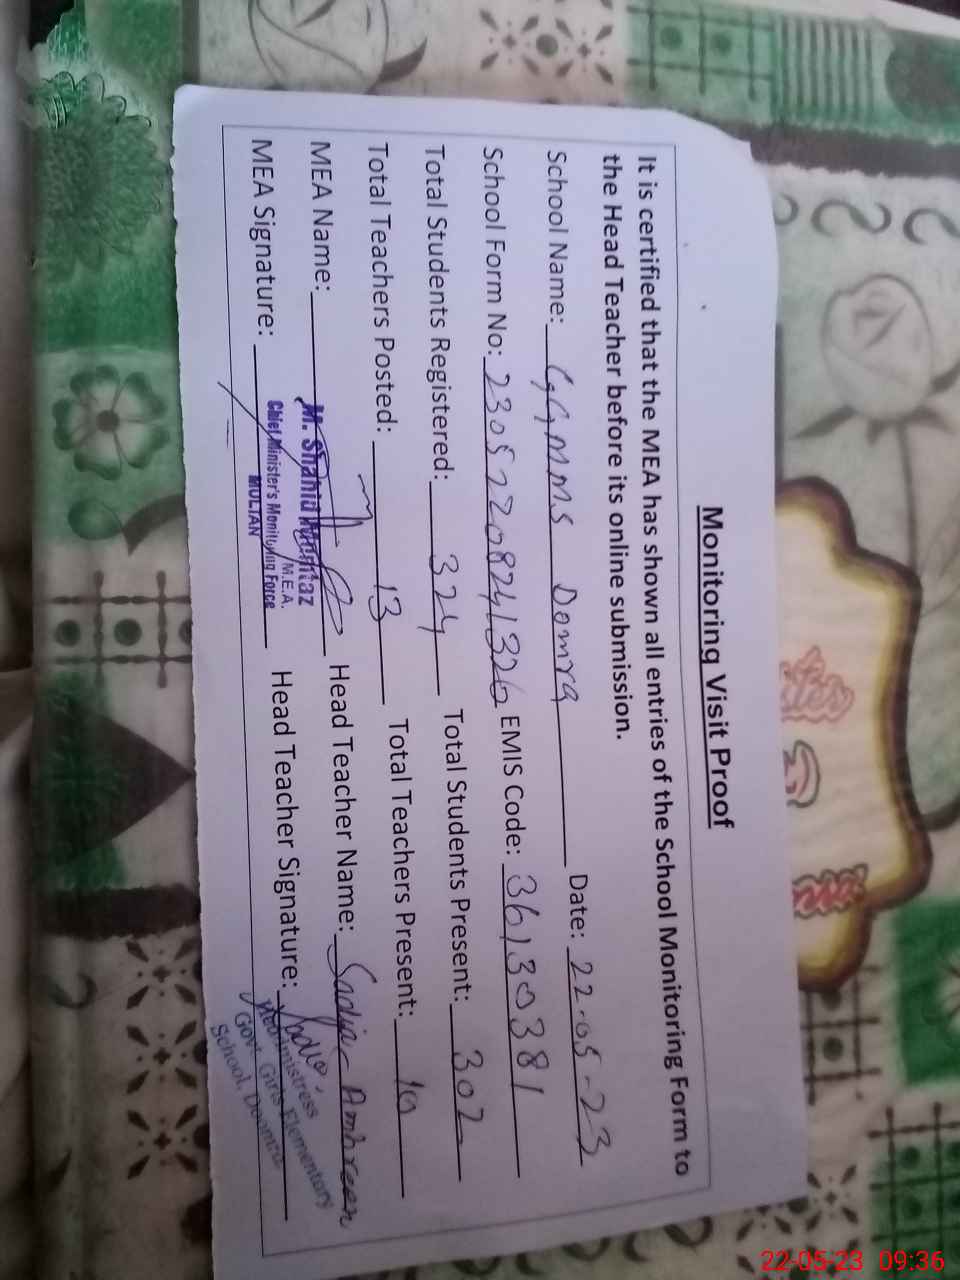 Monitoring Visit Proof
It is certified that the MEA has shown all entries of the School Monitoring Form to
the Head Teacher before its online submission.
School Name: GGMMS Domra Date: 22-05-23
School Form No: 23052208241326 EMIS Code: 36130381
Total Students Registered: 324 Total Students Present: 302
Total Teachers Posted: 13 Total Teachers Present: 10
MEA Name: M. Shahid Mushtaz Head Teacher Name: Sadia Ambreen
M.E.A.
MEA Signature: Chief Minister's Monitoring Force Head Teacher Signature: Sadia
MULTAN
Headmistress
Govt. Girls Elementary
School, Deomra
22-05-23 09:36